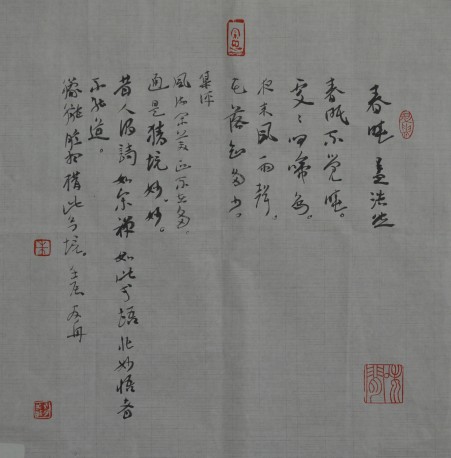 春晓 孟浩然
春眠不觉晓。
處々闻啼鸟。
夜来风雨聲。
花落知多少。
集评
风流闲美，正不在多。
通是猜境，妙，妙。
昔人谓诗如参禅 如此等语 非妙悟者
不能道。
朦胧臆想 構此幻境。